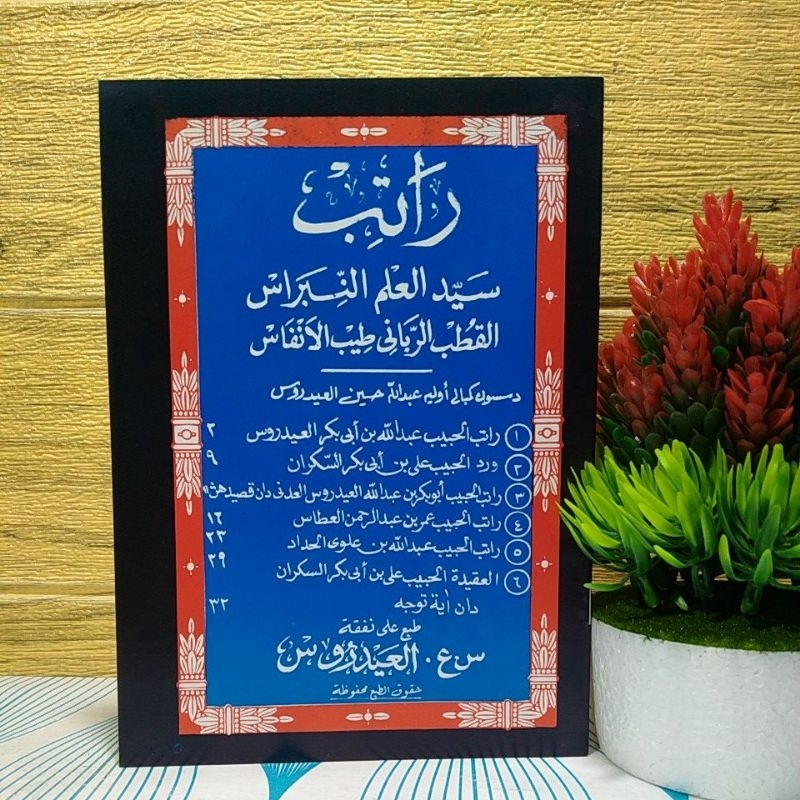 راتب
سَيّد العلم النِّبَراس
القُطب الرّبانى طِيب الأنفاس
دسسون كمبالى أوليه عبدالله حسين العيدروس
١ راتب الحبيب عبدالله بن أبى بكر العيدروس ٢
٢ ورد الحبيب على بن أبى بكر السّكران ٩
٣ راتب الحبيب أبوبكر بن عبدالله العيدروس العدنى دان قصيدهث
٤ راتب الحبيب عمر بن عبدالرحمن العطاس ١٦
٥ راتب الحبيب عبدالله بن علوى الحداد ٢٣
٦ العقيدة الحبيب على بن أبى بكر السكران ٢٩
دان أية توجه ٣٢
طبع على نفقة
س.ع. العَيدرُوس
حقوق الطبع محفوظة